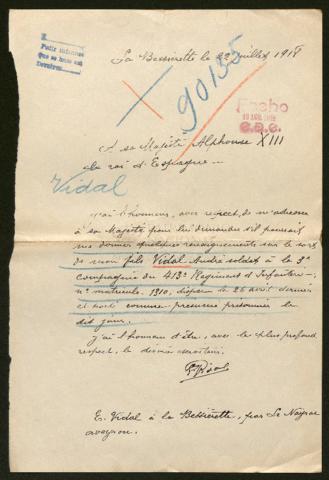 La Bessierette le 22 juillet 1918
90155
Ficho
E.D.C.
A sa Majesté Alphonse XIII
le roi d'Espagne
Vidal
j'ai l'honneur, avec respect, de m'adresser
à sa Majesté pour lui demander s'il pourrait
me donner quelques renseignements sur le sort
de mon fils Vidal André soldat à la 3e
Compagnie du 413e Régiment d'Infanterie
n° matricule 1910, disparu le 26 avril dernier
et porté comme presumé prisonnier le
dit jour.
j'ai l'honneur d'être, avec le plus profond
respect, le
E. Vidal à la Bessierette, par Le Nayrac
aveyron.